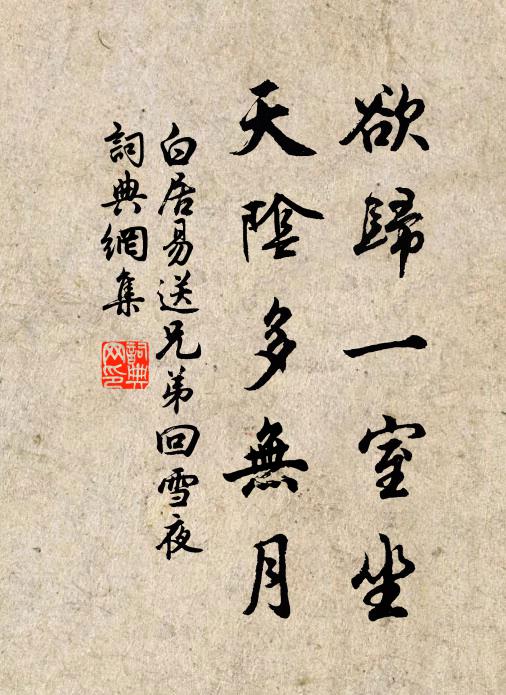 欲歸一室坐
天陰多無月
白居易送兄弟回雪夜
詞典網集
詞典网印